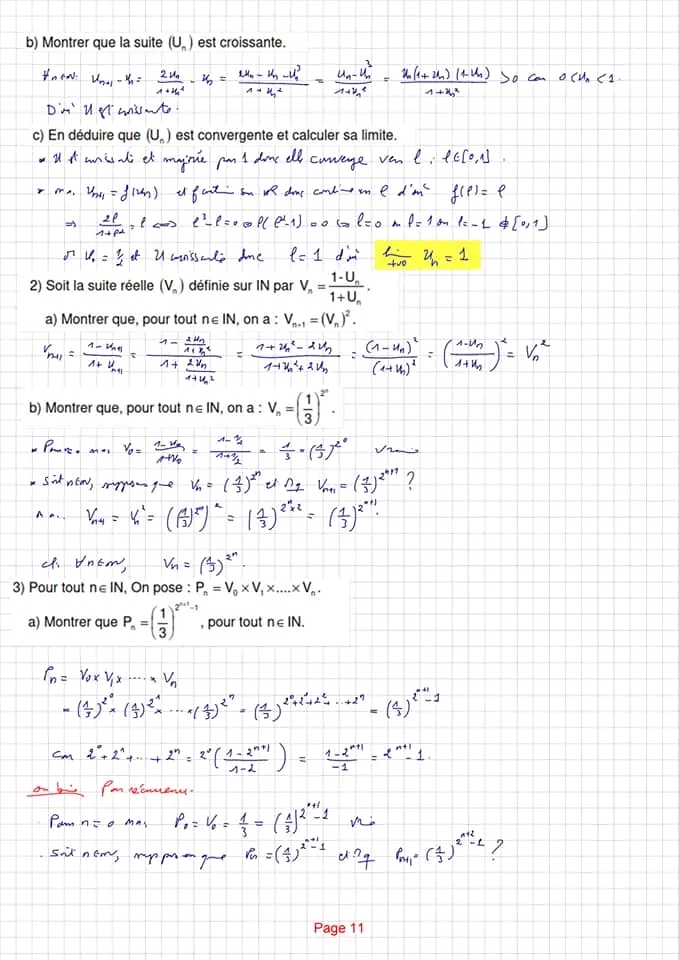 b) Montrer que la suite (Uₙ) est croissante.
∀n∈IN: uₙ₊₁ - uₙ = 2uₙ/(1+uₙ²) - uₙ = (2uₙ - uₙ - uₙ³)/(1+uₙ²) = (uₙ - uₙ³)/(1+uₙ²) = uₙ(1+uₙ)(1-uₙ)/(1+uₙ²) > 0 car 0<uₙ<1.
D'où U est croissante.
c) En déduire que (Uₙ) est convergente et calculer sa limite.
* U est croissante et majorée par 1 donc elle converge vers ℓ, ℓ∈[0,1].
* ona, uₙ₊₁ = f(uₙ) et f continue sur IR donc continue en ℓ d'où f(ℓ) = ℓ
⇒ 2ℓ/(1+ℓ²) = ℓ ⇔ ℓ³-ℓ=0 ⇔ ℓ(ℓ²-1) = 0 ⇔ ℓ=0 ou ℓ=1 ou ℓ=-1 ∉ [0,1]
or U₀ = 1/2 et U croissante donc ℓ = 1 d'où lim +∞ uₙ = 1
2) Soit la suite réelle (Vₙ) définie sur IN par Vₙ = (1-Uₙ)/(1+Uₙ).
a) Montrer que, pour tout n∈IN, on a : Vₙ₊₁ = (Vₙ)².
Vₙ₊₁ = (1-uₙ₊₁)/(1+uₙ₊₁) = (1 - 2uₙ/(1+uₙ²))/(1 + 2uₙ/(1+uₙ²)) = (1+uₙ²-2uₙ)/(1+uₙ²+2uₙ) = (1-uₙ)²/(1+uₙ)² = ((1-uₙ)/(1+uₙ))² = Vₙ²
b) Montrer que, pour tout n∈IN, on a : Vₙ = (1/3)^(2^n).
* Pour n=0 ona, V₀ = (1-U₀)/(1+U₀) = (1-1/2)/(1+1/2) = 1/3 = (1/3)^(2^0) vraie
* Soit n∈IN, supposons que Vₙ = (1/3)^(2^n) et Mq Vₙ₊₁ = (1/3)^(2^(n+1)) ?
Vₙ₊₁ = Vₙ² = ((1/3)^(2^n))² = (1/3)^(2^n×2) = (1/3)^(2^(n+1)).
cl. ∀n∈IN, Vₙ = (1/3)^(2^n).
3) Pour tout n∈IN, On pose : Pₙ = V₀ × V₁ ×....× Vₙ.
a) Montrer que Pₙ = (1/3)^(2^(n+1)-1), pour tout n∈IN.
Pₙ = V₀ × V₁ × ..... × Vₙ
= (1/3)^(2^0) × (1/3)^(2^1) × ... × (1/3)^(2^n) = (1/3)^(2^0+2^1+2^2+...+2^n) = (1/3)^(2^(n+1)-1)
car 2^0 + 2^1 + ... + 2^n = 2^0((1-2^(n+1))/(1-2)) = (1-2^(n+1))/(-1) = 2^(n+1)-1.
ou bien Par récurrence.
. Pour n=0 ona, P₀ = V₀ = 1/3 = (1/3)^(2^(0+1)-1) vraie
. Soit n∈IN, supposons que Pₙ = (1/3)^(2^(n+1)-1) et Mq Pₙ₊₁ = (1/3)^(2^(n+2)-1) ?
Page 11